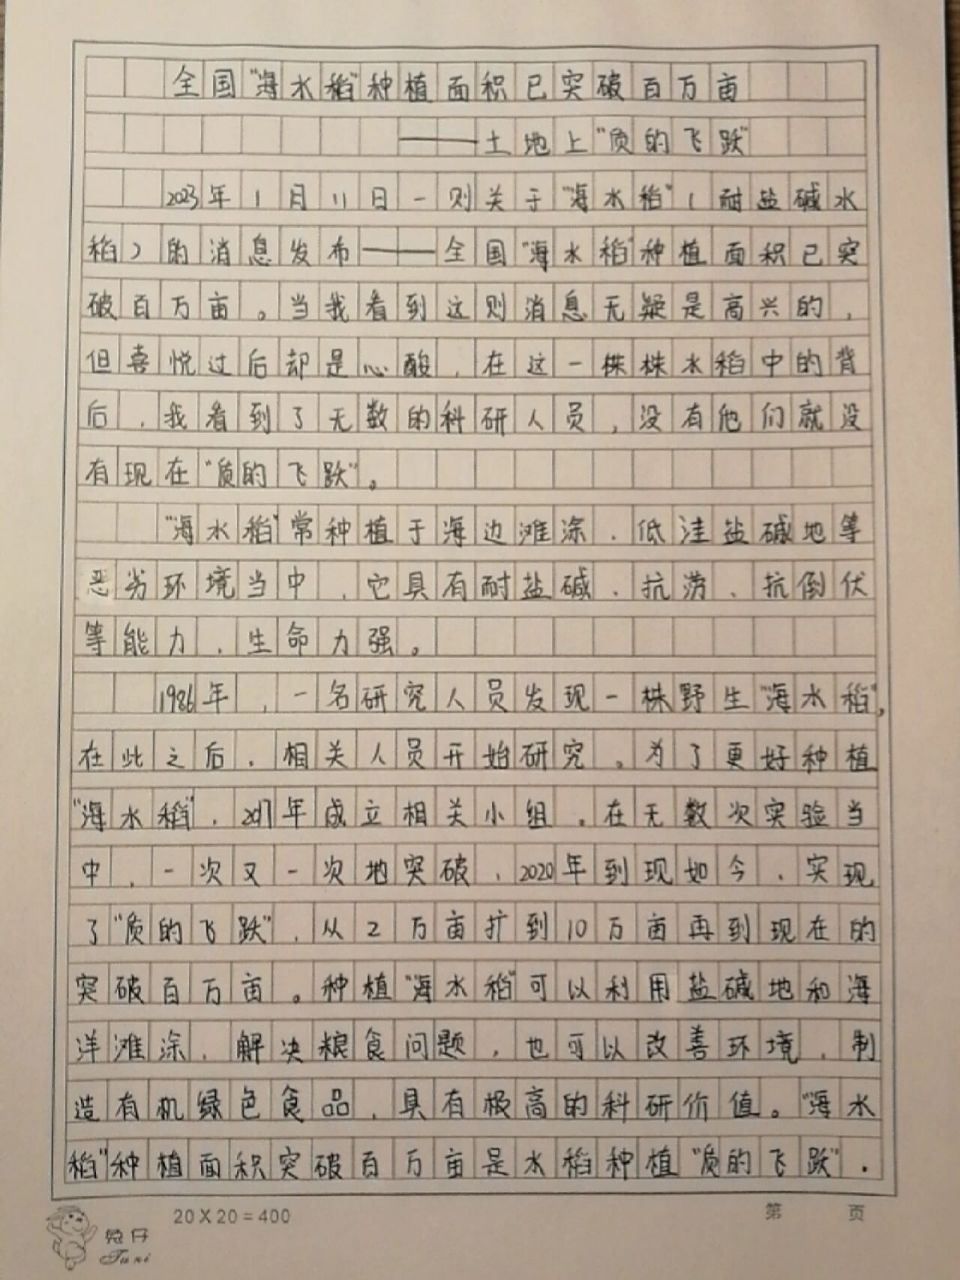 全国"海水稻"种植面积已突破百万亩
——土地上"质的飞跃"
2023年1月11日一则关于"海水稻"(耐盐碱水
稻)的消息发布——全国"海水稻"种植面积已突
破百万亩。当我看到这则消息无疑是高兴的,
但喜悦过后却是心酸,在这一株株水稻中的背
后,我看到了无数的科研人员,没有他们就没
有现在"质的飞跃"。
"海水稻"常种植于海边滩涂、低洼盐碱地等
恶劣环境当中,它具有耐盐碱、抗涝、抗倒伏
等能力,生命力强。
1986年,一名研究人员发现一株野生"海水稻",
在此之后,相关人员开始研究。为了更好种植
"海水稻",2017年成立相关小组。在无数次实验当
中,一次又一次地突破,2020年到现如今,实现
了"质的飞跃",从2万亩扩到10万亩再到现在的
突破百万亩。种植"海水稻"可以利用盐碱地和海
洋滩涂,解决粮食问题,也可以改善环境,制
造有机绿色食品,具有极高的科研价值。"海水
稻"种植面积突破百万亩是水稻种植"质的飞跃".
20X20=400
第 页
兔仔
Tuzi